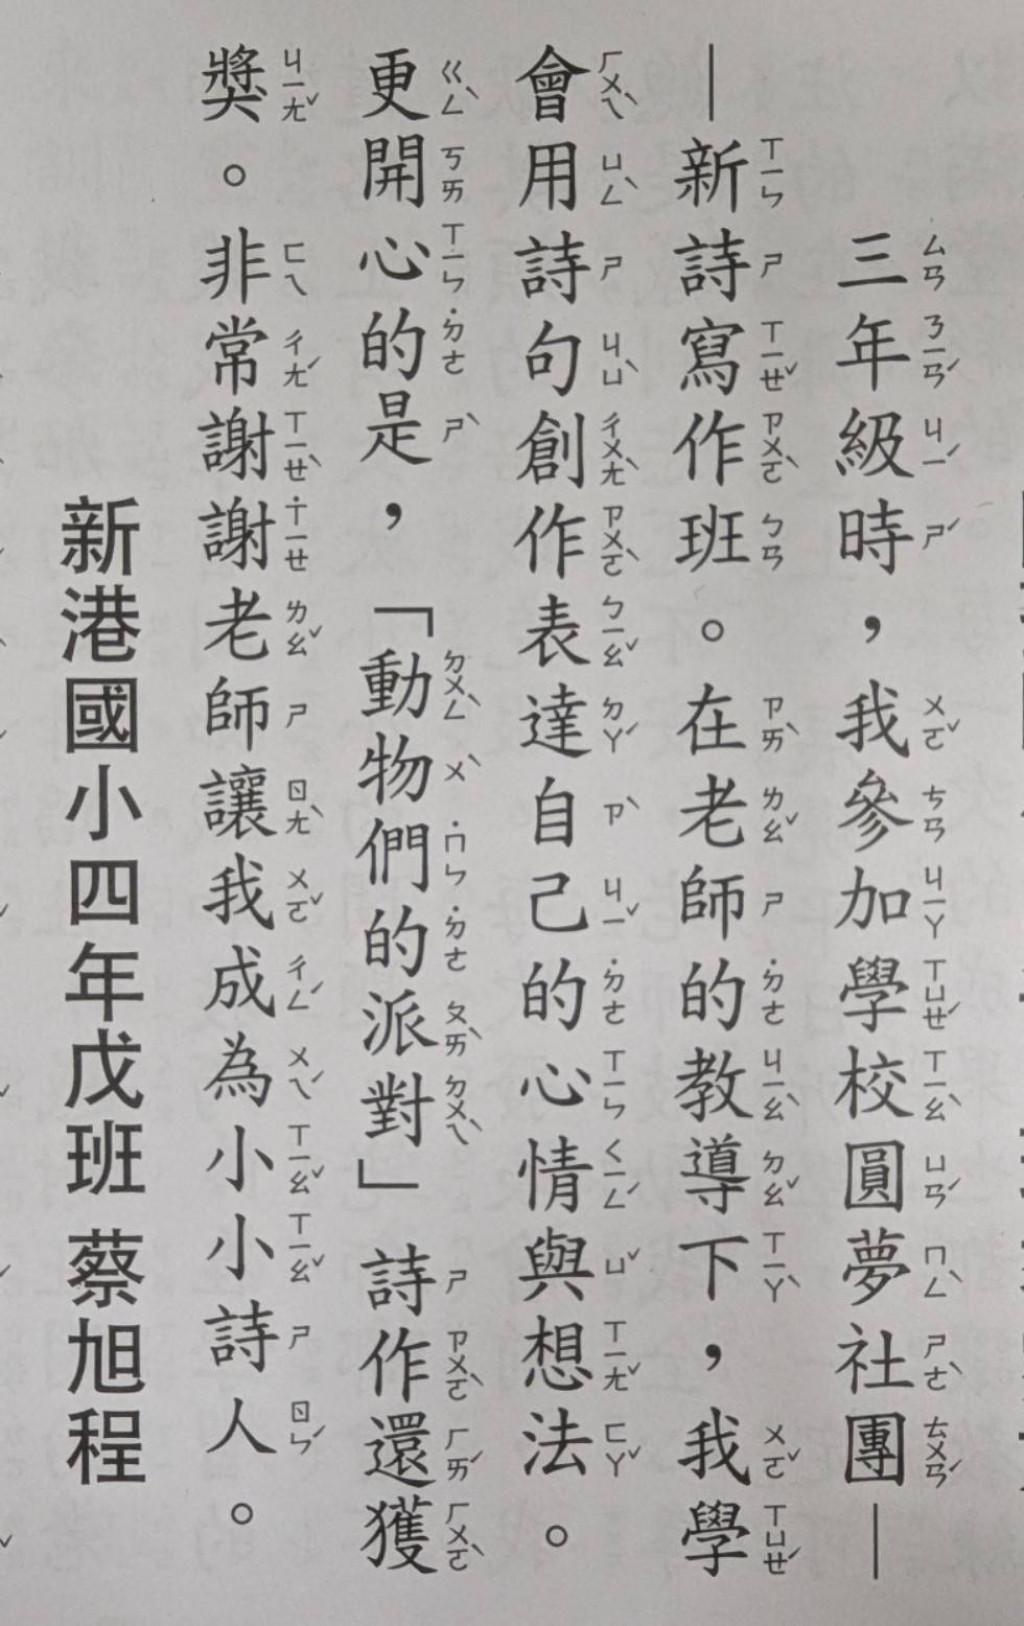 三年級時，我參加學校圓夢社團—
—新詩寫作班。在老師的教導下，我學
會用詩句創作表達自己的心情與想法。
更開心的是，「動物們的派對」詩作還獲
獎。非常謝謝老師讓我成為小小詩人。
新港國小四年戊班 蔡旭程